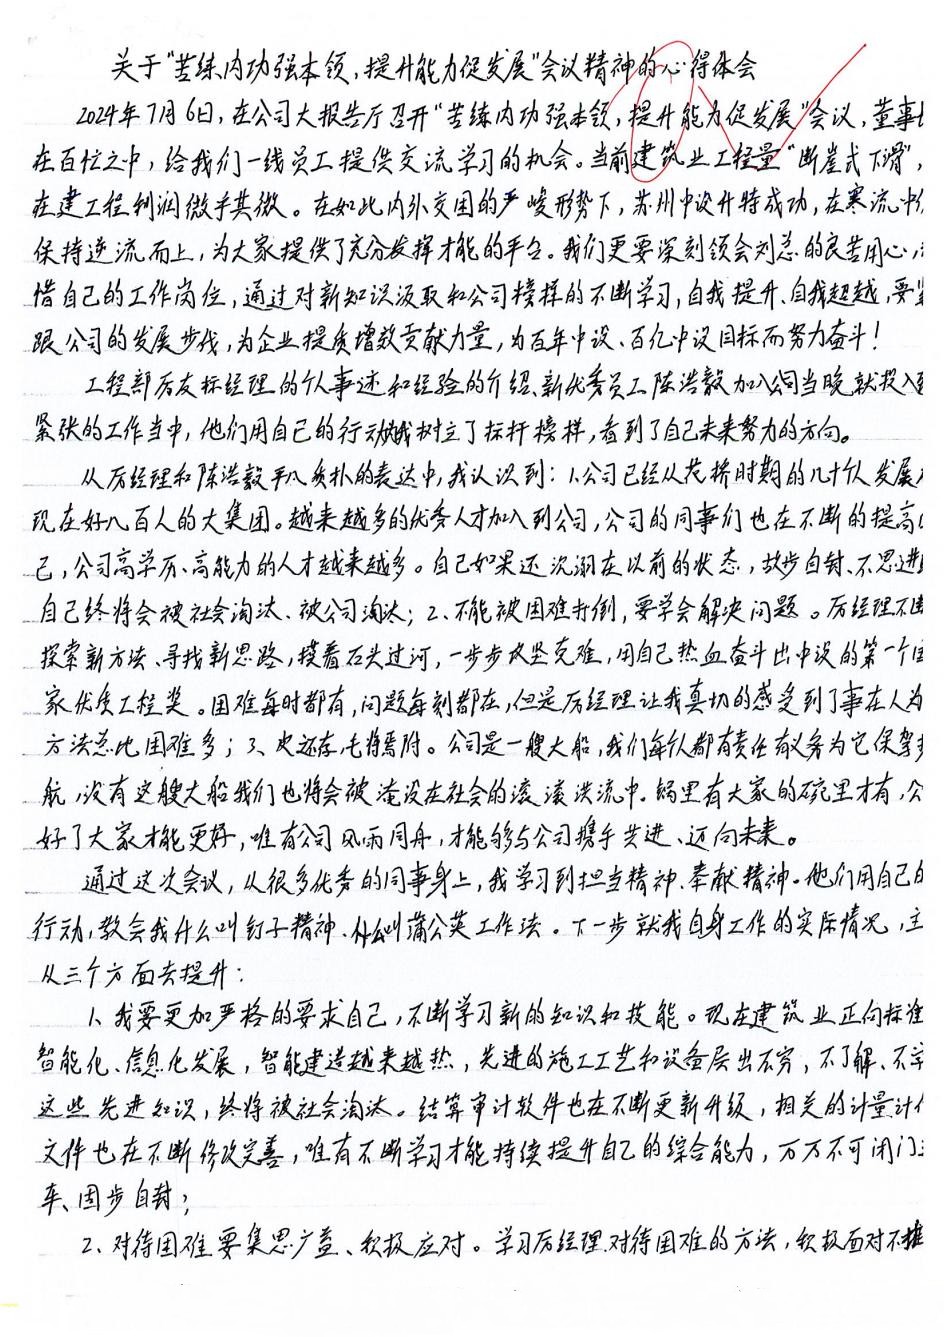 关于“苦练内功强本领,提升能力促发展”会议精神的心得体会
2024年7月6日,在公司大报告厅召开“苦练内功强本领,提升能力促发展”会议,董事
在百忙之中,给我们一线员工提供交流学习的机会。当前建筑业工程量“断崖式下滑”,
在建工程利润微乎其微。在如此内外交困的严峻形势下,苏州中设升特成功,在寒流中
保持逆流而上,为大家提供了充分发挥才能的平台。我们更要深刻领会刘总的良苦用心,
惜自己的工作岗位,通过对新知识汲取和公司榜样的不断学习,自我提升、自我超越,要紧
跟公司的发展步伐,为企业提质增效贡献力量,为百年中设、百亿中设目标而努力奋斗!
工程部厉友标经理的个人事迹和经验的介绍、新优秀员工陈浩毅加入公司当晚就投入到
紧张的工作当中,他们用自己的行动给我树立了标杆榜样,看到了自己未来努力的方向。
从厉经理和陈浩毅平凡质朴的表达中,我认识到:1、公司已经从花桥时期的几十个人发展
现在好几百人的大集团。越来越多的优秀人才加入到公司,公司的同事们也在不断的提高
己,公司高学历、高能力的人才越来越多。自己如果还沉溺在以前的状态,故步自封、不思进
自己终将会被社会淘汰、被公司淘汰;2、不能被困难打倒,要学会解决问题。厉经理不断
探索新方法、寻找新思路,摸着石头过河,一步步攻坚克难,用自己热血奋斗出中设的第一个国
家优质工程奖。困难每时都有,问题每刻都在,但是厉经理让我真切的感受到了事在人为
方法总比困难多;3、皮还存,毛将焉附。公司是一艘大船,我们每个人都有责任有义务为它保驾
航,没有这艘大船我们也将会被淹没在社会的滚滚洪流中。锅里有大家的碗里才有,公
好了大家才能更好,唯有公司风雨同舟,才能够与公司携手共进、迈向未来。
通过这次会议,从很多优秀的同事身上,我学习到担当精神、奉献精神。他们用自己的
行动,教会我什么叫钉子精神、什么叫蒲公英工作法。下一步就我自身工作的实际情况,主
从三个方面去提升:
1、我要更加严格的要求自己,不断学习新的知识和技能。现在建筑业正向标准
智能化、信息化发展,智能建造越来越热,先进的施工工艺和设备层出不穷,不了解、不学
这些先进知识,终将被社会淘汰。结算审计软件也在不断更新升级,相关的计量计价
文件也在不断修改完善,唯有不断学习才能持续提升自己的综合能力,万万不可闭门
车、固步自封;
2、对待困难要集思广益、积极应对。学习厉经理对待困难的方法,积极面对不推